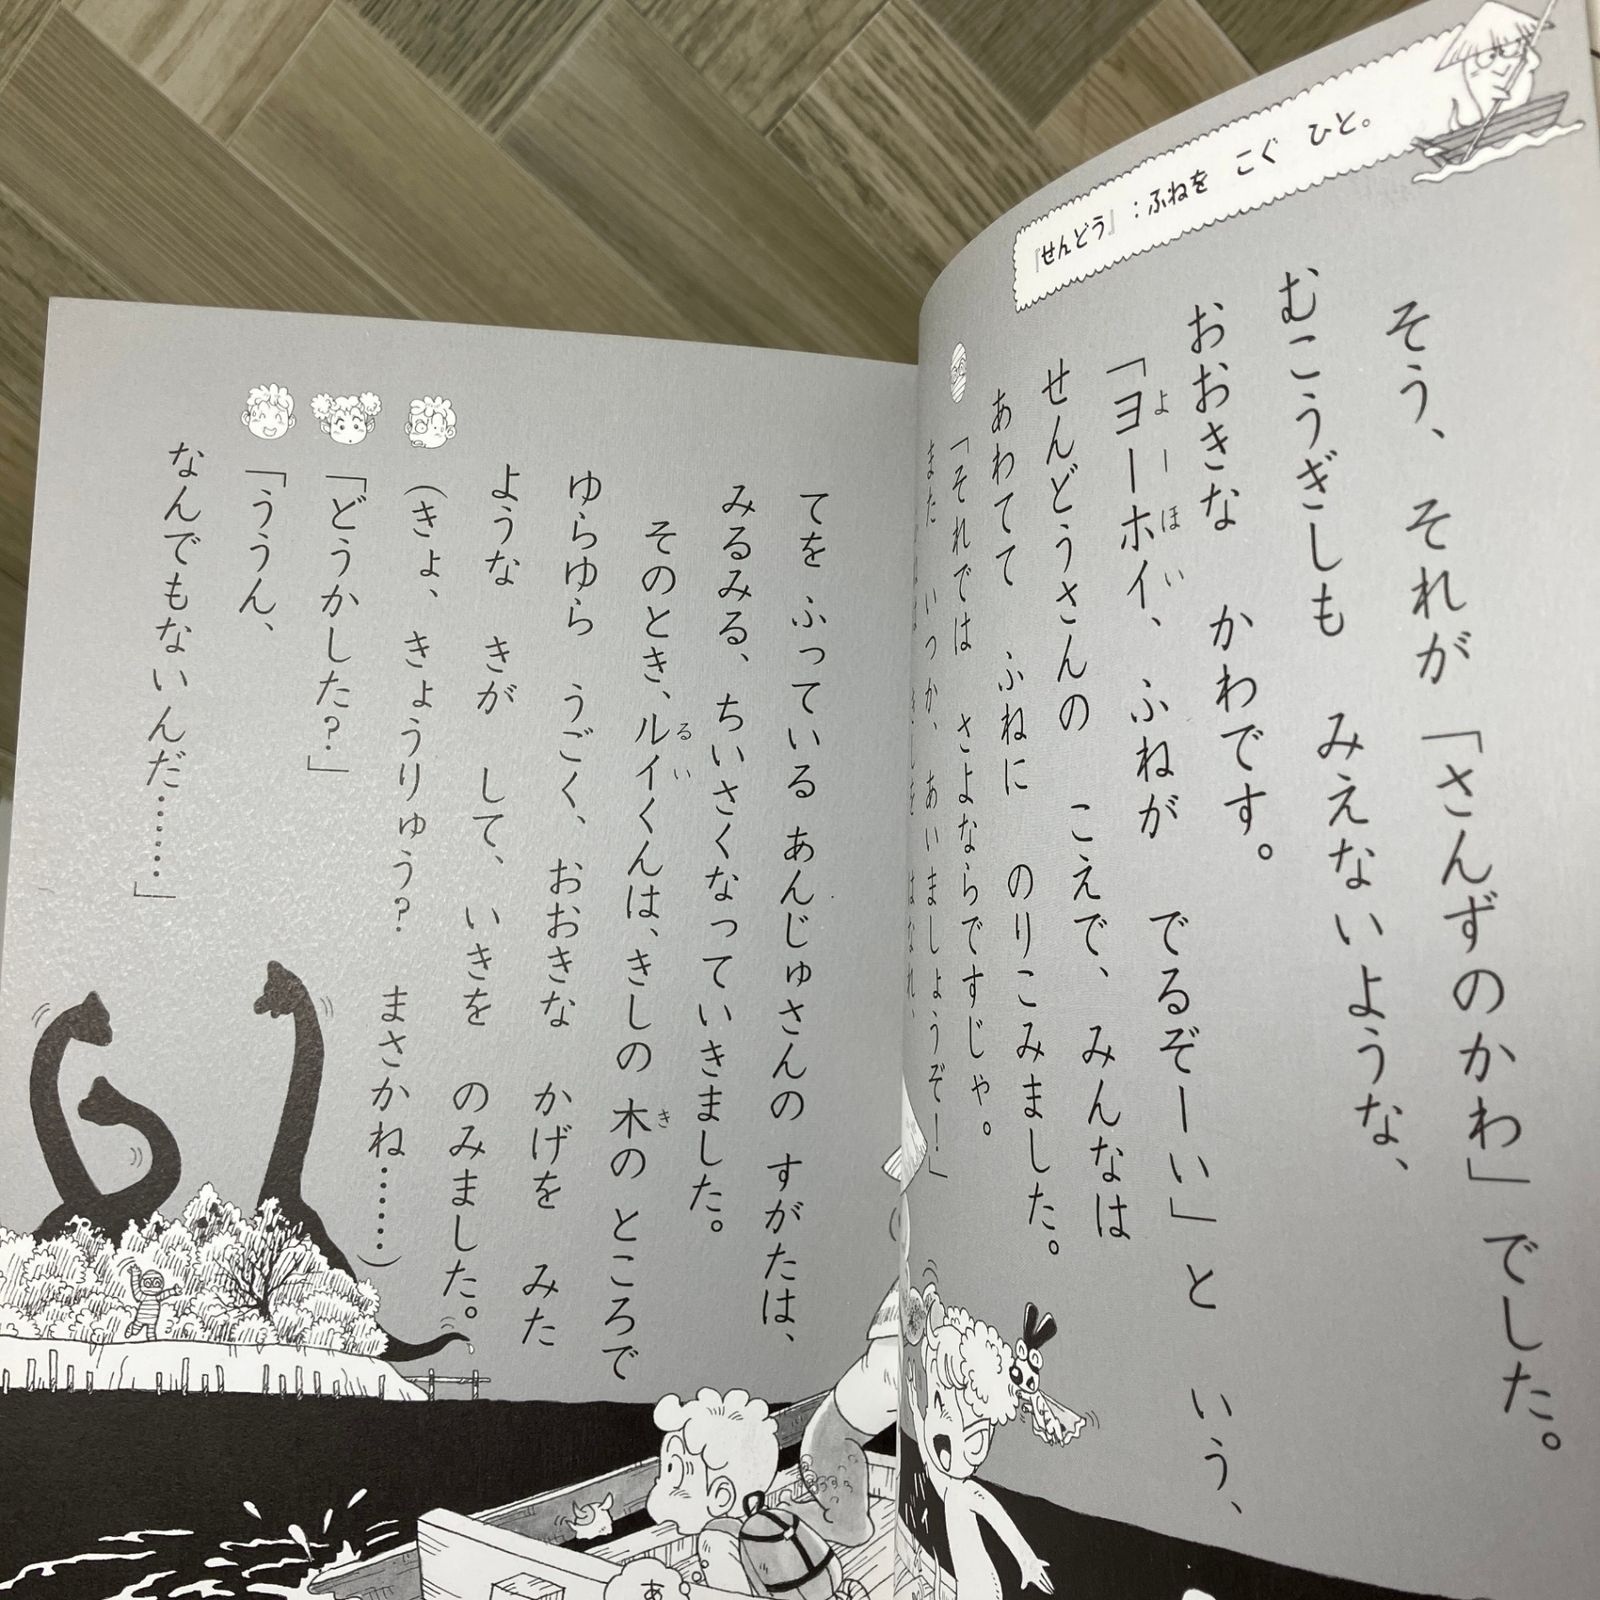 『せんどう』：ふねを こぐ ひと。
そう、それが「さんずのかわ」でした。
むこうぎしも みえないような、
おおきな かわです。
「ヨーホイ、ふねが でるぞーい」と いう、
よーほい
せんどうさんの こえで、みんなは
あわてて ふねに のりこみました。
「それでは さよならですじゃ。
また いつか、あいましょうぞー！」
はなれ、
てを ふっている あんじゅさんの すがたは、
みるみる、ちいさくなっていきました。
そのとき、ルイくんは、きしの 木の ところで
るい
き
ゆらゆら うごく、おおきな かげを みた
ような きが して、いきを のみました。
（きょ、きょうりゅう？ まさかね……）
「どうかした？」
「ううん、
なんでもないんだ……」
あ